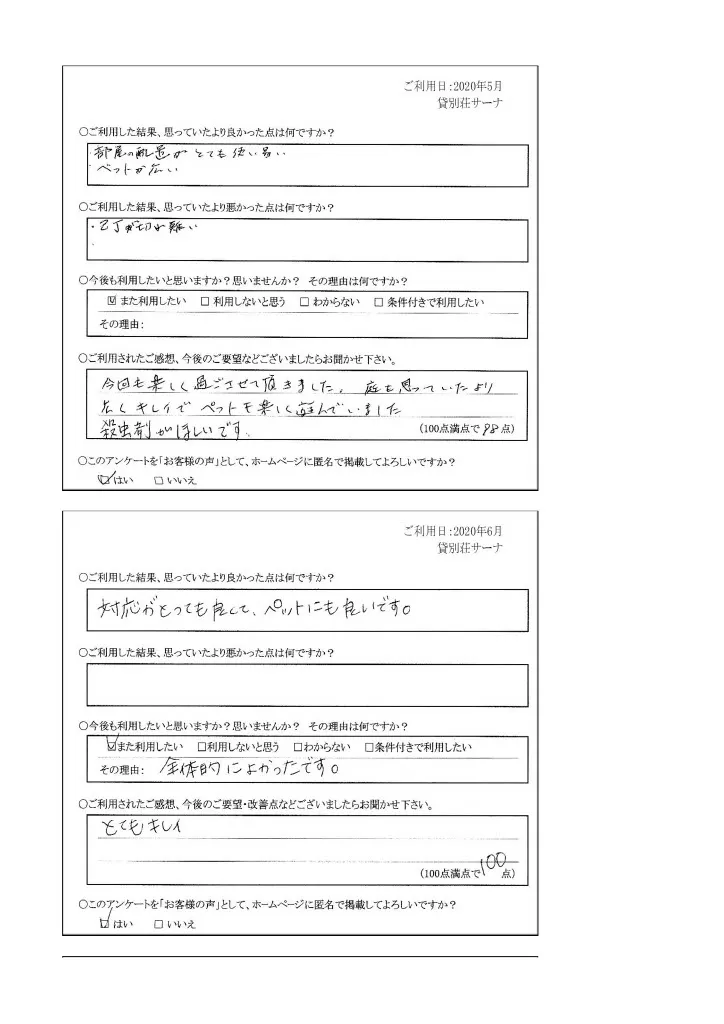 ご利用日:2020年5月
貸別荘サーナ
○ご利用した結果、思っていたより良かった点は何ですか?
・部屋の配置がとても使い易い
・ベットが広い
○ご利用した結果、思っていたより悪かった点は何ですか?
・包丁が切れ難い
・
○今後も利用したいと思いますか?思いませんか? その理由は何ですか?
☑ また利用したい □ 利用しないと思う □ わからない □ 条件付きで利用したい
その理由:
○ご利用されたご感想、今後のご要望などございましたらお聞かせ下さい。
今回も楽しく過ごさせて頂きました。庭も思っていたより
広くキレイでペットも楽しく遊んでいました
殺虫剤がほしいです。 (100点満点で 98 点)
○このアンケートを「お客様の声」として、ホームページに匿名で掲載してよろしいですか?
☑ はい □ いいえ
ご利用日:2020年6月
貸別荘サーナ
○ご利用した結果、思っていたより良かった点は何ですか?
対応がとっても良くて、ペットにも良いです。
○ご利用した結果、思っていたより悪かった点は何ですか?
○今後も利用したいと思いますか?思いませんか? その理由は何ですか?
☑また利用したい □利用しないと思う □わからない □条件付きで利用したい
その理由: 全体的によかったです。
○ご利用されたご感想、今後のご要望・改善点などございましたらお聞かせ下さい。
とてもキレイ
(100点満点で 100 点)
○このアンケートを「お客様の声」として、ホームページに匿名で掲載してよろしいですか?
☑ はい □ いいえ